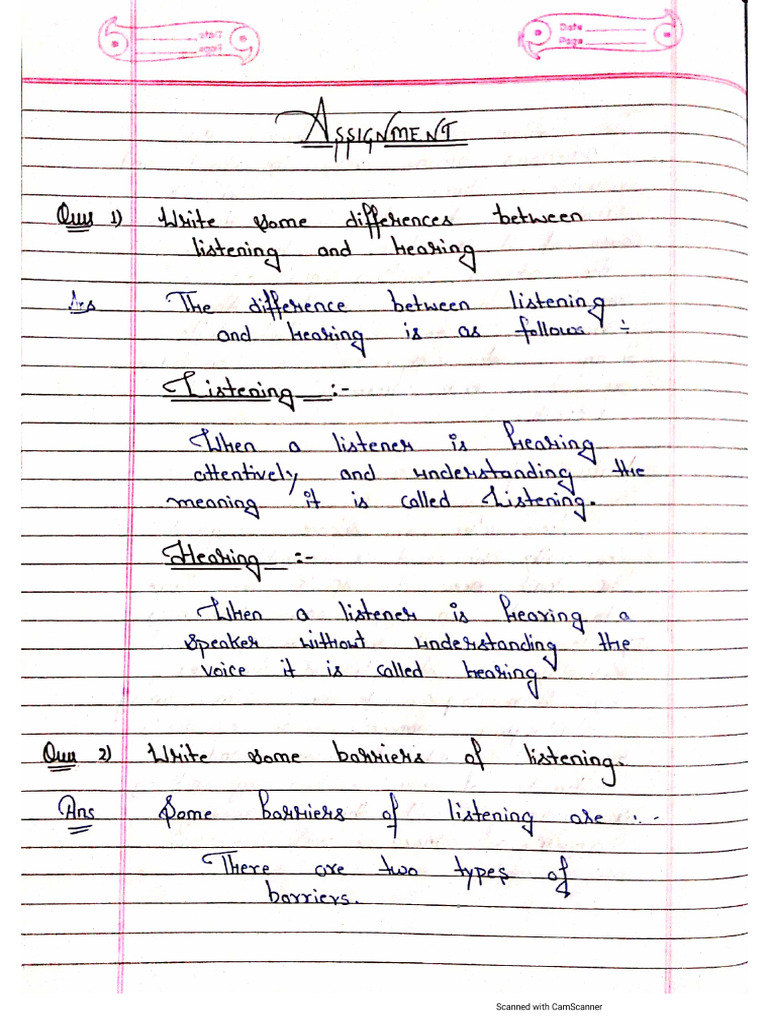 Date
Page
ASSIGNMENT
Ques 1) Write some differences between
listening and hearing
Ans The difference between listening
and hearing is as follows :-
Listening :-
When a listener is hearing
attentively and understanding the
meaning it is called Listening.
Hearing :-
When a listener is hearing a
speaker without understanding the
voice it is called hearing.
Ques 2) Write some barriers of listening.
Ans Some barriers of listening are :-
There are two types of
barriers.
Scanned with CamScanner